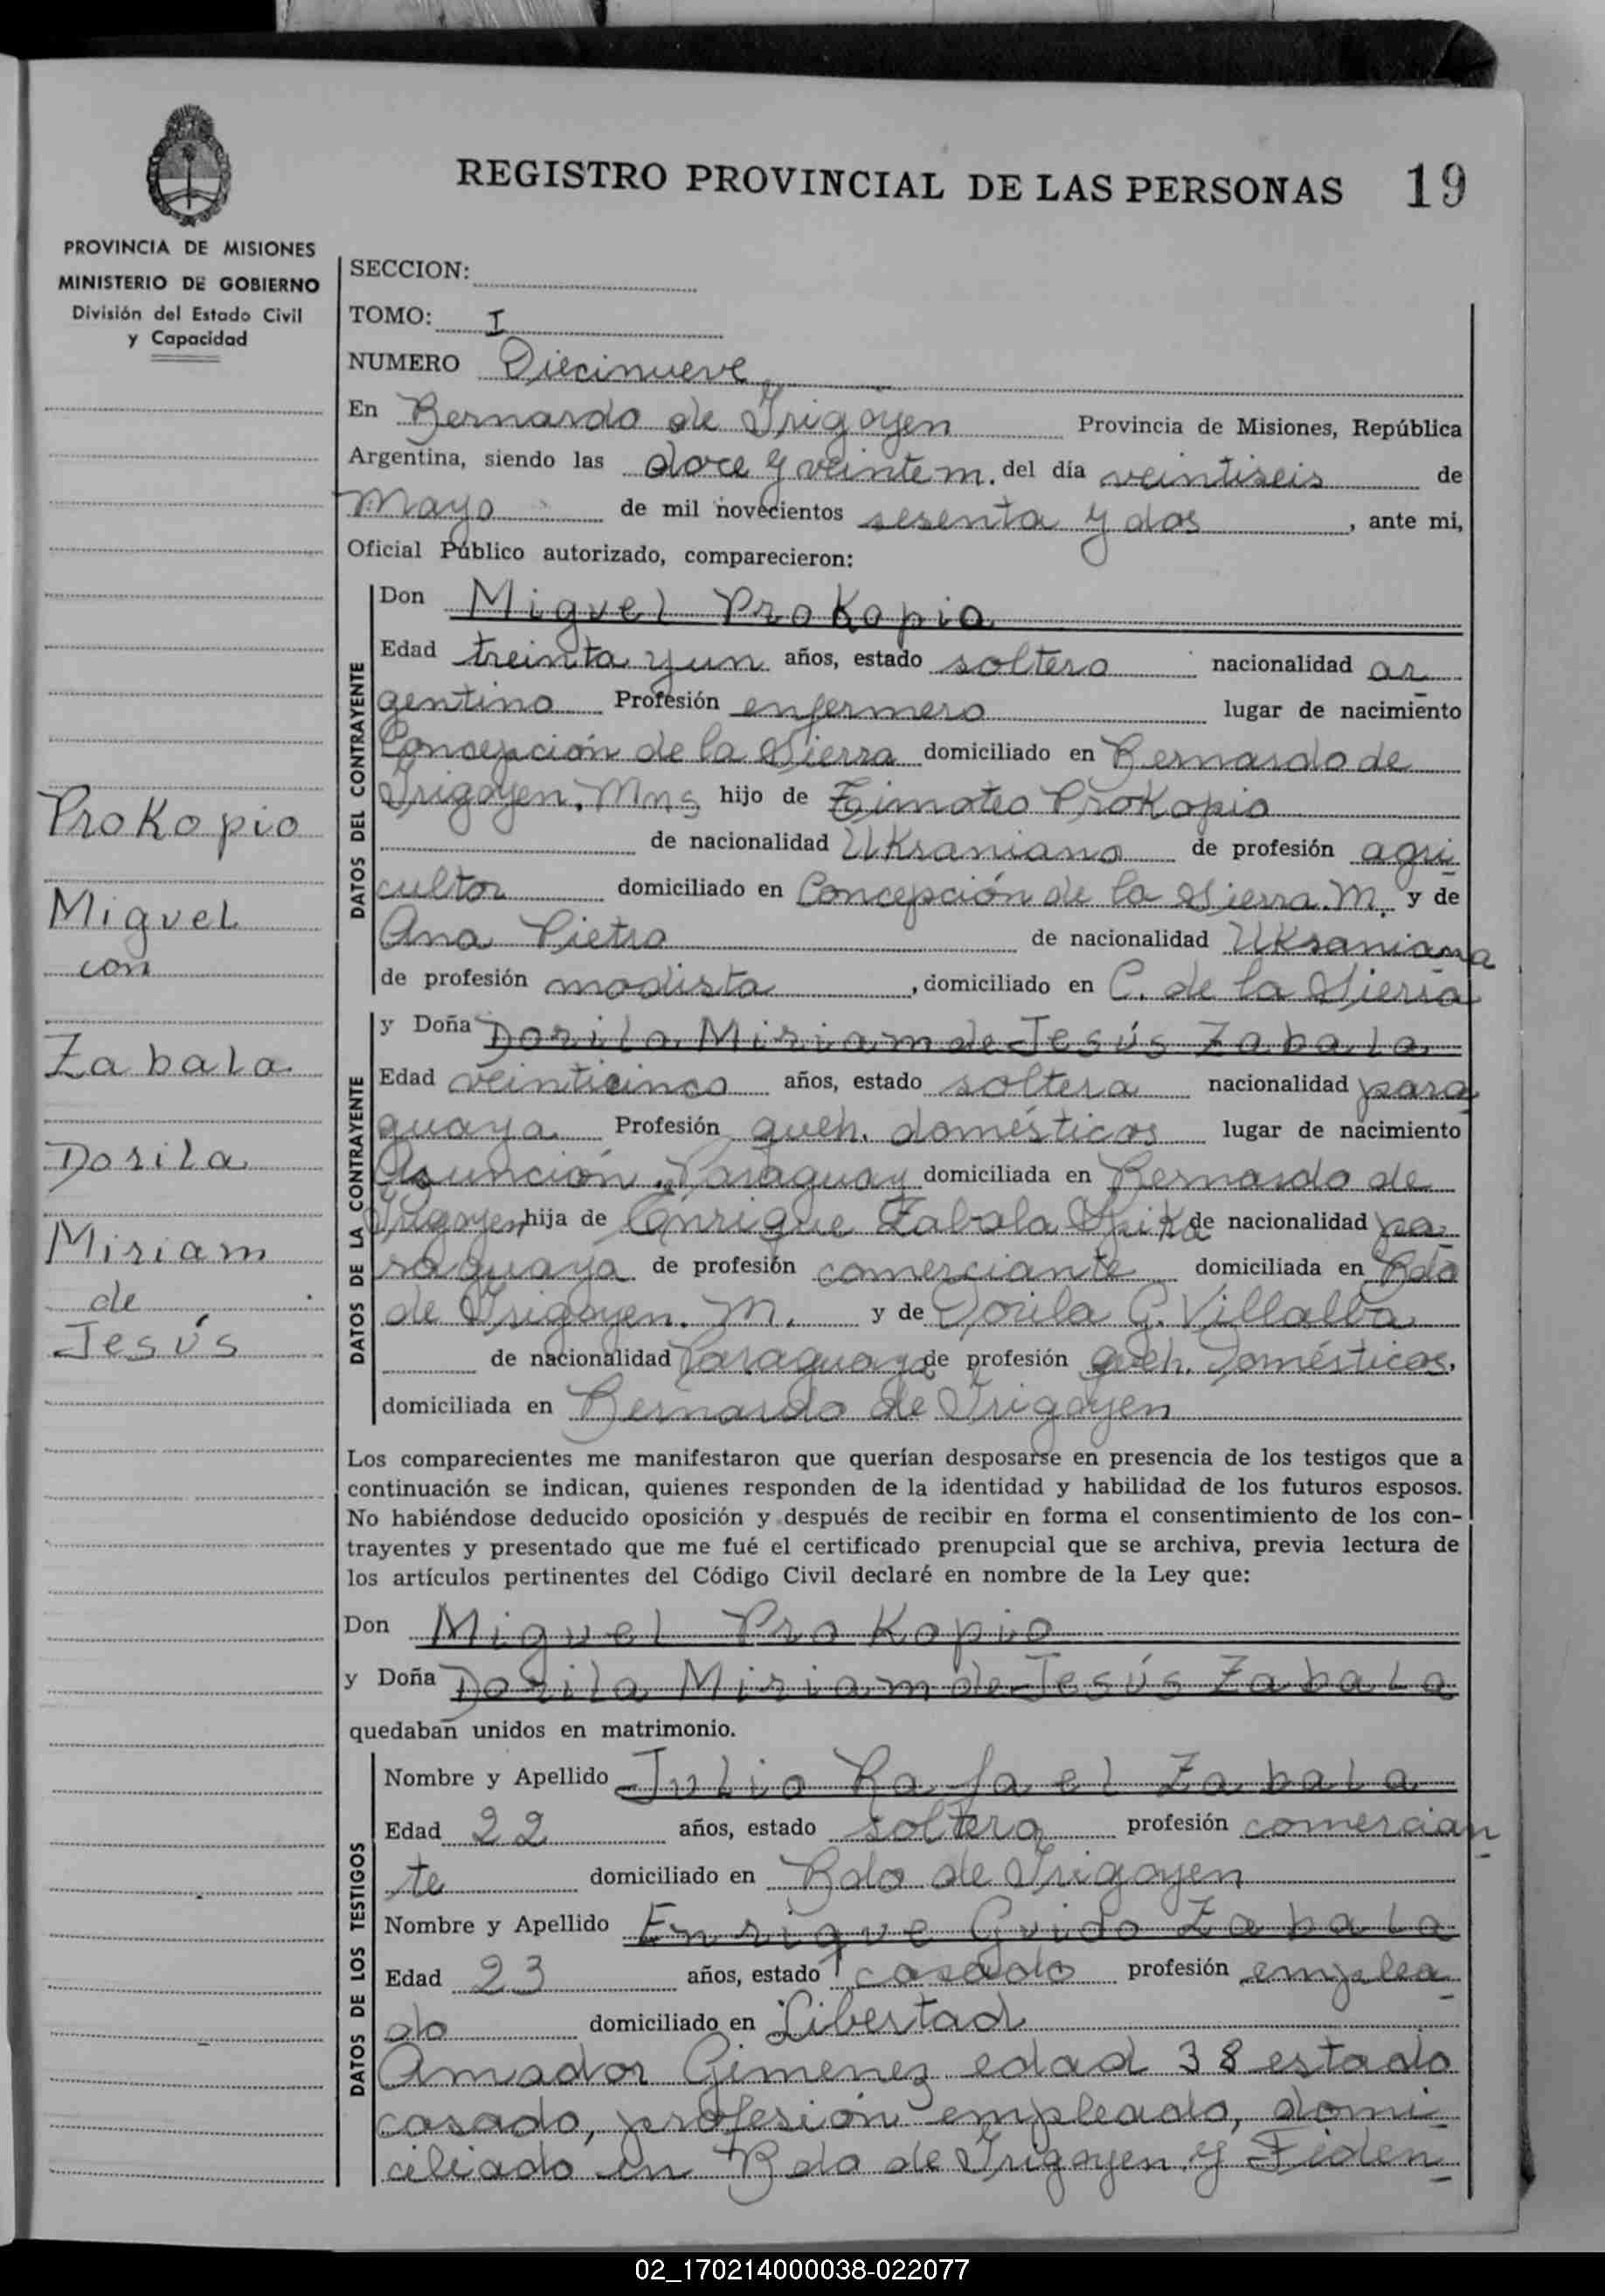 REGISTRO PROVINCIAL DE LAS PERSONAS 19
PROVINCIA DE MISIONES
MINISTERIO DE GOBIERNO
División del Estado Civil
y Capacidad
Prokopio
Miguel
con
Zabala
Dorila
Miriam
de
Jesús
SECCION:
TOMO: I
NUMERO Diecinueve
En Bernardo de Irigoyen Provincia de Misiones, República
Argentina, siendo las doce y veinte m. del día veintiseis de
Mayo de mil novecientos sesenta y dos, ante mi,
Oficial Público autorizado, comparecieron:
DATOS DEL CONTRAYENTE
Don Miguel Prokopio
Edad treinta y un años, estado soltero nacionalidad ar
gentino Profesión enfermero lugar de nacimiento
Concepción de la Sierra domiciliado en Bernardo de
Irigoyen, Mns hijo de Timoteo Prokopio
de nacionalidad Ukraniano de profesión agri
cultor domiciliado en Concepción de la Sierra. M. y de
Ana Pietro de nacionalidad Ukraniana
de profesión modista, domiciliado en C. de la Sierra
DATOS DE LA CONTRAYENTE
y Doña Dorila Miriam de Jesús Zabala
Edad veinticinco años, estado soltera nacionalidad para
guaya Profesión queh. domésticos lugar de nacimiento
Asunción, Paraguay domiciliada en Bernardo de
Irigoyen hija de Enrique Zabala de nacionalidad pa
raguaya de profesión comerciante domiciliada en Bdo
de Irigoyen. M. y de Dorila G. Villalba
de nacionalidad Paraguaya de profesión queh. Domésticos,
domiciliada en Bernardo de Irigoyen
Los comparecientes me manifestaron que querían desposarse en presencia de los testigos que a
continuación se indican, quienes responden de la identidad y habilidad de los futuros esposos.
No habiéndose deducido oposición y después de recibir en forma el consentimiento de los con-
trayentes y presentado que me fué el certificado prenupcial que se archiva, previa lectura de
los artículos pertinentes del Código Civil declaré en nombre de la Ley que:
Don Miguel Prokopio
y Doña Dorila Miriam de Jesús Zabala
quedaban unidos en matrimonio.
DATOS DE LOS TESTIGOS
Nombre y Apellido Julio Rafael Zabala
Edad 22 años, estado soltero profesión comercian
te domiciliado en Bdo de Irigoyen
Nombre y Apellido Enrique Guido Zabala
Edad 23 años, estado casado profesión emplea
do domiciliado en Libertad
Amador Gimenez edad 38 estado
casado, profesión empleado, domi
ciliado en Bdo de Irigoyen y Fiden
02_170214000038-022077